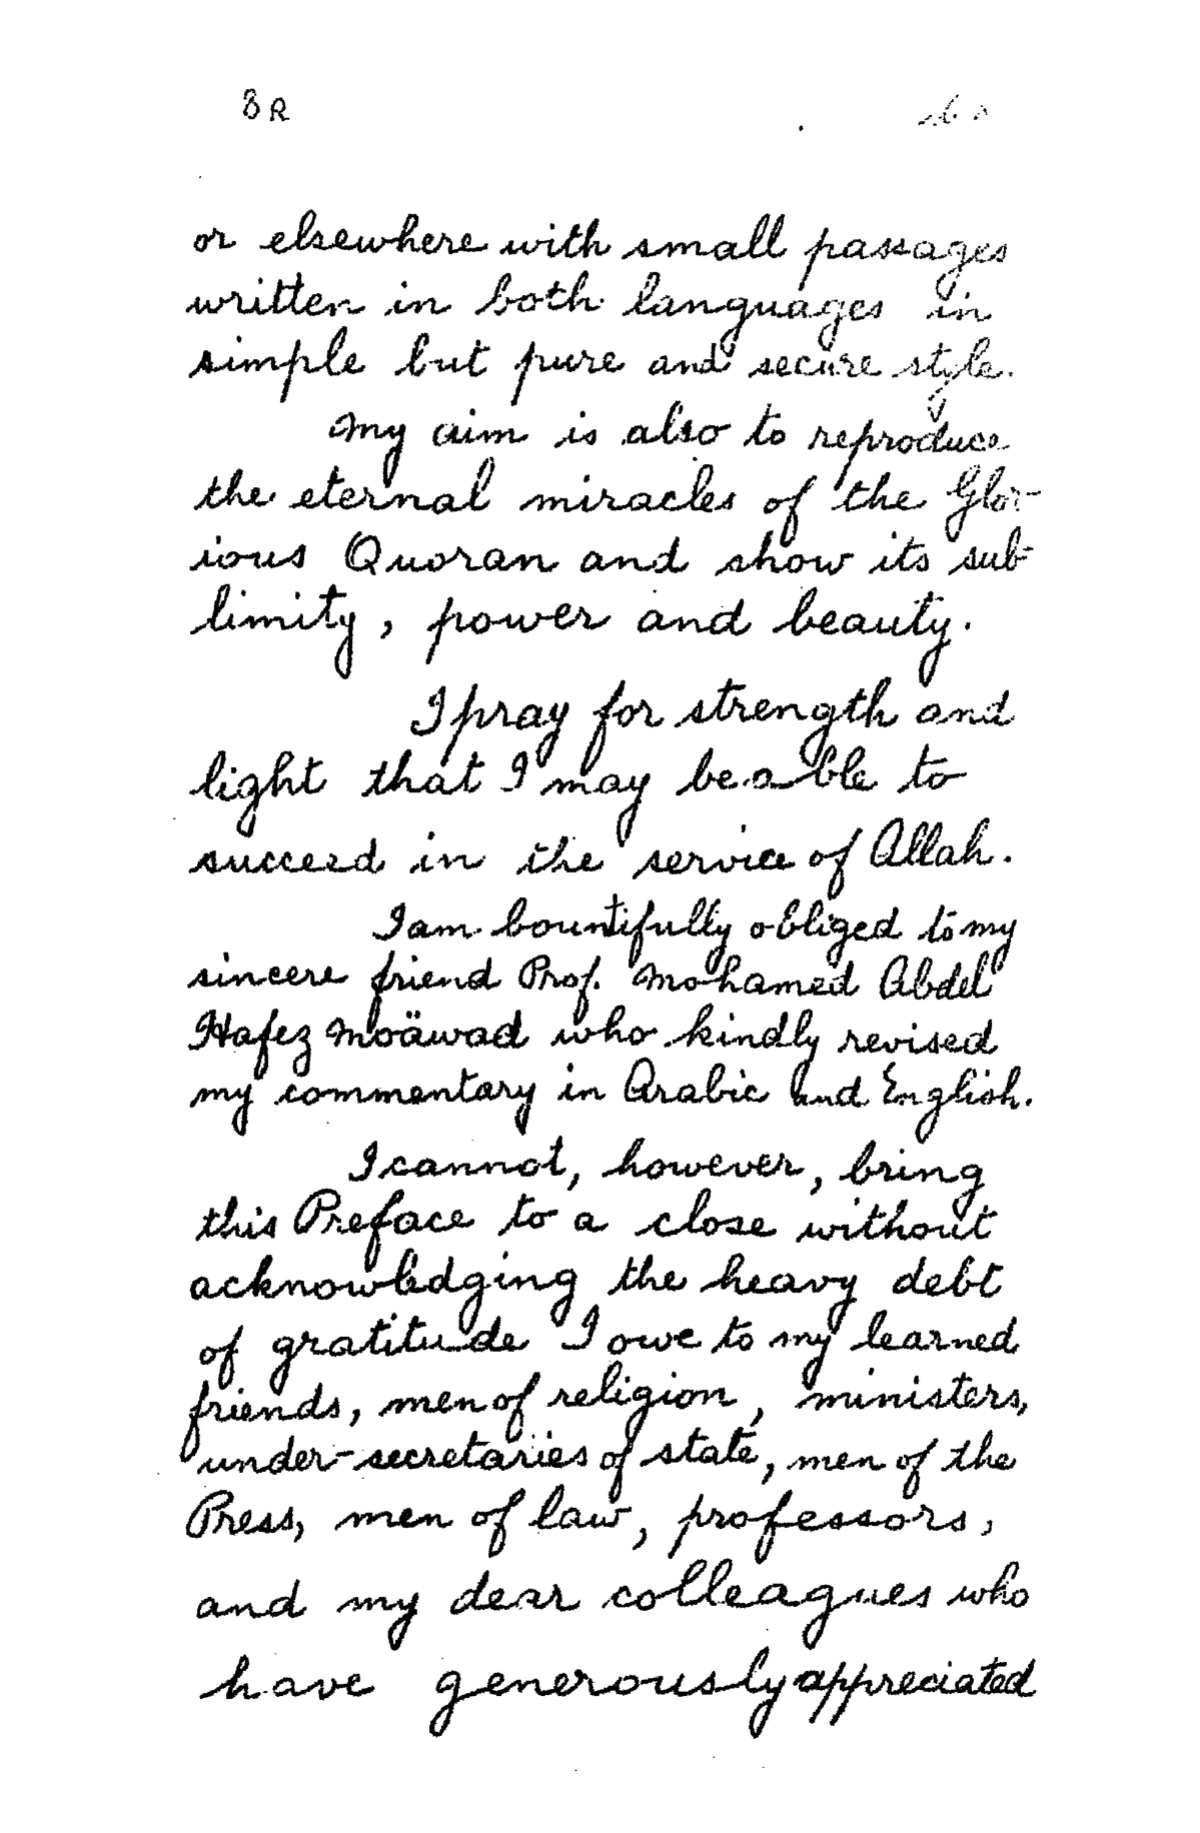 8R
or elsewhere with small passages
written in both languages in
simple but pure and secure style.
My aim is also to reproduce
the eternal miracles of the Glor-
ious Quoran and show its sub-
limity, power and beauty.
I pray for strength and
light that I may be able to
succeed in the service of Allah.
I am bountifully obliged to my
sincere friend Prof. Mohamed Abdel
Hafez Moäwad who kindly revised
my commentary in Arabic and English.
I cannot, however, bring
this Preface to a close without
acknowledging the heavy debt
of gratitude I owe to my learned
friends, men of religion, ministers,
under-secretaries of state, men of the
Press, men of law, professors,
and my dear colleagues who
have generously appreciated